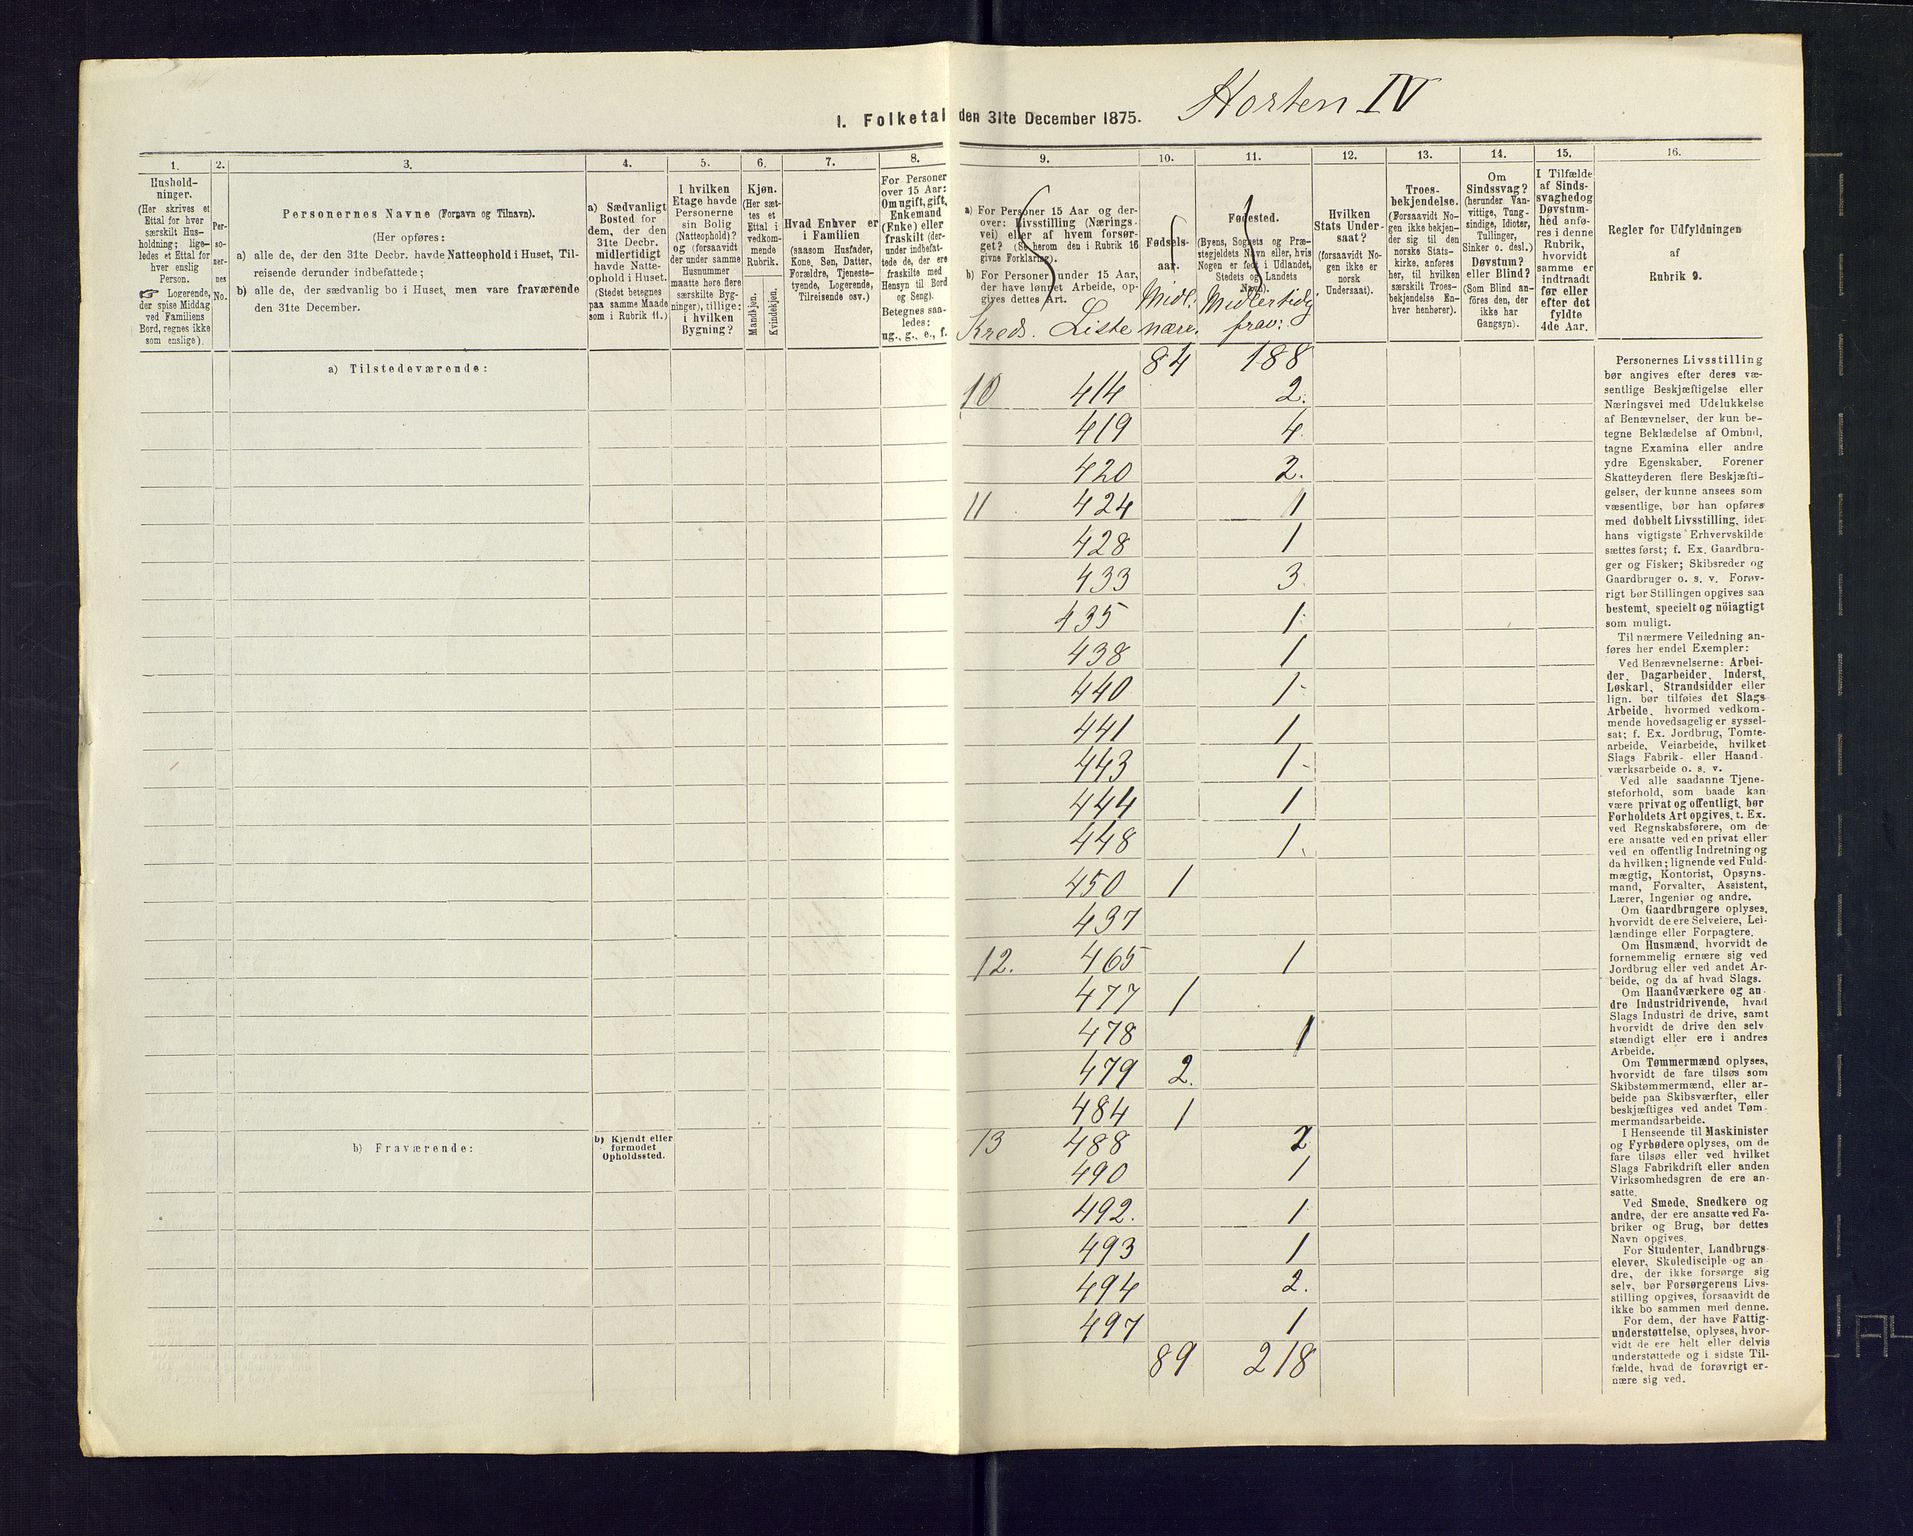 Horten IV
I. Folketal den 31te December 1875.
1.
2.
3.
4.
5.
6.
7.
8.
9.
10.
11.
12.
13.
14.
15.
16.
Hushold-
ninger.
(Her skrives et
Ettal for hver
særskilt Hus-
holdning; lige-
ledes et Ettal for
hver enslig
Person.
☞ Logerende,
der spise Middag
ved Familiens
Bord, regnes ikke
som enslige).
Per-
so-
ner-
nes
No.
Personernes Navne (Fornavn og Tilnavn).
(Her opføres:
a) alle de, der den 31te Decbr. havde Natteophold i Huset, Til-
reisende derunder indbefattede;
b) alle de, der sædvanlig bo i Huset, men vare fraværende
den 31te December.
a) Sædvanligt
Bosted for
dem, der den
31te Decbr.
midlertidigt
havde Natte-
ophold i Huset.
(Stedet betegnes
paa samme Maade
som i Rubrik 11.)
I hvilken
Etage havde
Personerne
sin Bolig
(Natteophold)?
og (forsaavidt
der under samme
Husnummer
maatte høre flere
særskilte Byg-
ninger), tillige:
i hvilken
Bygning?
Kjøn.
(Her sæt-
tes et
Ettal i
vedkom-
mende
Rubrik.
Mandkjøn.
Kvindekjøn.
Hvad Enhver er
i Familien
(saasom Husfader,
Kone, Søn, Datter,
Forældre, Tjeneste-
tyende, Logerende,
Tilreisende osv.)
For Personer
over 15 Aar:
Om ugift, gift,
Enkemand
(Enke) eller
fraskilt (der-
under indbefat-
tede de, der ere
fraskilte med
Hensyn til Bord
og Seng).
Betegnes saa-
ledes:
ug., g., e., f.
a) For Personer 15 Aar og der-
over: Livsstilling (Nærings-
vei) eller af hvem forsør-
get? (Se herom den i Rubrik 16
givne Forklaring).
b) For Personer under 15 Aar,
der have lønnet Arbeide, op-
gives dettes Art.
Kreds. Liste
Fødsels-
aar.
Midl.
nære.
Fødested.
(Byens, Sognets og Præ-
stegjeldets Navn eller, hvis
Nogen er født i Udlandet,
Stedets og Landets
Navn).
Midlertidig
frav:
Hvilken
Stats Under-
saat?
(forsaavidt No-
gen ikke er
norsk
Undersaat).
Troes-
bekjendelse.
(Forsaavidt No-
gen ikke bekjen-
der sig til den
norske Stats-
kirke, anføres
her, til hvilken
særskilt Troes-
bekjendelse En-
hver henhører).
Om
Sindssvag?
(herunder Van-
vittige, Tung-
sindige, Idioter,
Tullinger,
Sinker o. desl.).
Døvstum?
eller Blind?
(Som Blind an-
føres den, der
ikke har
Gangsyn).
I Tilfælde
af Sinds-
svaghed og
Døvstum-
hed anfø-
res i denne
Rubrik,
hvorvidt
samme er
indtraadt
før eller
efter det
fyldte
4de Aar.
Regler for Udfyldningen
af
Rubrik 9.
a) Tilstedeværende:
84 188
10 414 2.
419 4.
420 2.
11 424 1
428 1
433 3.
435 1
438 1
440 1
441 1
443 1
444 1
448 1
450 1
437
12. 465 1
477 1
478 1
479 2.
484 1
13 488 2
490 1
492. 1
493 1
494 2.
497 1
89 218
b) Fraværende:
b) Kjendt eller
formodet
Opholdssted.
Personernes Livsstilling
bør angives efter deres væ-
sentlige Beskjæftigelse eller
Næringsvei med Udelukkelse
af Benævnelser, der kun be-
tegne Beklædelse af Ombud,
tagne Examina eller andre
ydre Egenskaber. Forener
Skatteyderen flere Beskjæfti-
gelser, der kunne ansees som
væsentlige, bør han opføres
med dobbelt Livsstilling, idet
hans vigtigste Erhvervskilde
sættes først; f. Ex. Gaardbru-
ger og Fisker; Skibsreder og
Gaardbruger o. s. v. Forøv-
rigt bør Stillingen opgives saa
bestemt, specielt og nöiagtigt
som muligt.
Til nærmere Veiledning an-
føres her endel Exempler:
Ved Benævnelserne: Arbei-
der, Dagarbeider, Inderst,
Løskarl, Strandsidder eller
lign. bør tilføies det Slags
Arbeide, hvormed vedkom-
mende hovedsagelig er syssel-
sat; f. Ex. Jordbrug, Tomte-
arbeide, Veiarbeide, hvilket
Slags Fabrik- eller Haand-
værksarbeide o. s. v.
Ved alle saadanne Tjene-
steforhold, som baade kan
være privat og offentligt, bør
Forholdets Art opgives, t. Ex.
ved Regnskabsførere, om de
ere ansatte ved en privat eller
ved en offentlig Indretning og
da hvilken; lignende ved Fuld-
mægtig, Kontorist, Opsyns-
mand, Forvalter, Assistent,
Lærer, Ingeniør og andre.
Om Gaardbrugere oplyses,
hvorvidt de ere Selveiere, Lei-
lændinge eller Forpagtere.
Om Husmænd, hvorvidt de
fornemmelig ernære sig ved
Jordbrug eller ved andet Ar-
beide, og da af hvad Slags.
Om Haandværkere og an-
dre Industridrivende, hvad
Slags Industri de drive, samt
hvorvidt de drive den selv-
stændigt eller ere i andres
Arbeide.
Om Tømmermænd oplyses,
hvorvidt de fare tilsøs som
Skibstømmermænd, eller ar-
beide paa Skibsværfter, eller
beskjæftiges ved andet Tøm-
mermandsarbeide.
I Henseende til Maskinister
og Fyrbødere oplyses, om de
fare tilsøs eller ved hvilket
Slags Fabrikdrift eller anden
Virksomhedsgren de ere an-
satte.
Ved Smede, Snedkere og
andre, der ere ansatte ved Fa-
briker og Brug, bør dettes
Navn opgives.
For Studenter, Landbrugs-
elever, Skoledisciple og an-
dre, der ikke forsørge sig
selv, bør Forsørgerens Livs-
stilling opgives, forsaavidt de
ikke bo sammen med denne.
For dem, der have Fattig-
understøttelse, oplyses, hvor-
vidt de ere helt eller delvis
understøttede og i sidste Til-
fælde, hvad de forøvrigt er-
nære sig ved.